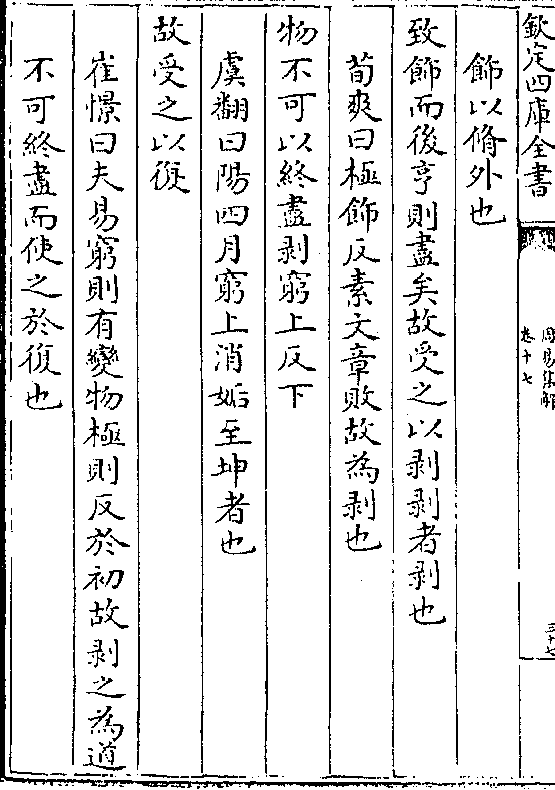 欽定四庫全書
周易集解
卷十七
三十七
飾以脩外也
致飾而後亨則盡矣故受之以剥剥者剥也
荀爽曰極飾反素文章敗故為剥也
物不可以終盡剥窮上反下
虞翻曰陽四月窮上消姤至坤者也
故受之以復
崔憬曰夫易窮則有變物極則反於初故剥之為道
不可終盡而使之於復也